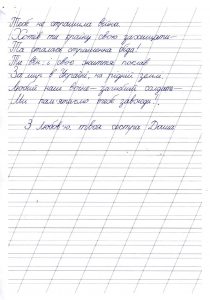 Тебе не страшила війна.
Хотів ти країну свою захищати
Та сталась страшенна біда!
Ти він і свою життя поклав
За мир в Україні, на рідній землі.
Любий наш воїне – загиблий солдате –
Ми пам'ятаємо тебе завжди!
З любов'ю твоя сестра Даша